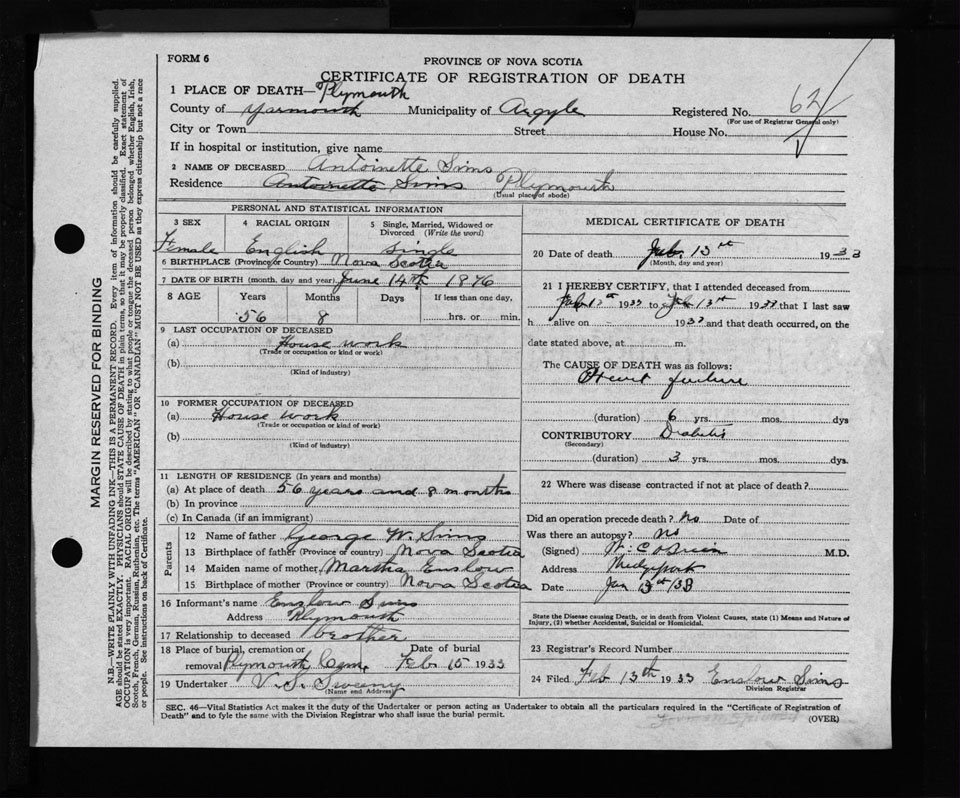 FORM 6
PROVINCE OF NOVA SCOTIA
CERTIFICATE OF REGISTRATION OF DEATH
1 PLACE OF DEATH—Plymouth
County of Yarmouth Municipality of Argyle Registered No. 62
(For use of Registrar General only)
City or Town Street House No.
If in hospital or institution, give name
2 NAME OF DECEASED Antoinette Sims
Residence Antoinette Sims Plymouth
(Usual place of abode)
PERSONAL AND STATISTICAL INFORMATION
3 SEX 4 RACIAL ORIGIN 5 Single, Married, Widowed or Divorced (Write the word)
Female English Single
6 BIRTHPLACE (Province or Country) Nova Scotia
7 DATE OF BIRTH (month, day and year) June 14th 1876
8 AGE Years Months Days If less than one day,
56 8 hrs. or min.
9 LAST OCCUPATION OF DECEASED
(a) House work
(Trade or occupation or kind or work)
(b)
(Kind of industry)
10 FORMER OCCUPATION OF DECEASED
(a) House work
(Trade or occupation or kind of work)
(b)
(Kind of industry)
11 LENGTH OF RESIDENCE (In years and months)
(a) At place of death 56 years and 8 months
(b) In province
(c) In Canada (if an immigrant)
Parents
12 Name of father George W. Sims
13 Birthplace of father (Province or country) Nova Scotia
14 Maiden name of mother Martha Enslow
15 Birthplace of mother (Province or country) Nova Scotia
16 Informant's name Enslow Sims
Address Plymouth
17 Relationship to deceased brother
18 Place of burial, cremation or removal Plymouth Cem. Date of burial Feb 15 1933
19 Undertaker V. S. Sweeny
(Name and Address)
MEDICAL CERTIFICATE OF DEATH
20 Date of death Feb. 13th 1933
(Month, day and year)
21 I HEREBY CERTIFY, that I attended deceased from
1933 to Feb 13th 1933 that I last saw
h alive on 1933 and that death occurred, on the
date stated above, at m.
The CAUSE OF DEATH was as follows:
Heart failure
(duration) 6 yrs. mos. dys
CONTRIBUTORY Diabetis
(Secondary)
(duration) 3 yrs. mos. dys.
22 Where was disease contracted if not at place of death?
Did an operation precede death? No Date of
Was there an autopsy? No
(Signed) M.D.
Address
Date
State the Disease causing Death, or in death from Violent Causes, state (1) Means and Nature of
Injury, (2) whether Accidental, Suicidal or Homicidal.
23 Registrar's Record Number
24 Filed Feb 13th 1933 Enslow Sims
Division Registrar
SEC. 46—Vital Statistics Act makes it the duty of the Undertaker or person acting as Undertaker to obtain all the particulars required in the "Certificate of Registration of
Death" and to fyle the same with the Division Registrar who shall issue the burial permit.
(OVER)
MARGIN RESERVED FOR BINDING
N.B.—WRITE PLAINLY WITH UNFADING INK—THIS IS A PERMANENT RECORD. Every item of information should be carefully supplied.
AGE should be stated EXACTLY. PHYSICIANS should STATE CAUSE OF DEATH in plain terms, so that it may be properly classified. Exact statement of
OCCUPATION is very important. RACIAL ORIGIN will be described by stating to what people or tongue the deceased person belonged whether English, Irish,
Scotch, French, German, Russian, Ruthenian, etc. The terms "AMERICAN" OR "CANADIAN" MUST NOT BE USED as they express citizenship but not a race
or people. See instructions on back of Certificate.